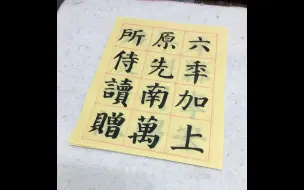 六年加上
原先南萬
所侍讀贈